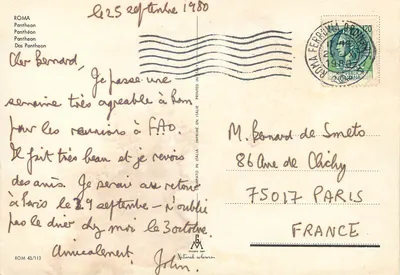 le 25 septembre 1980
ROMA
Pantheon
Panthéon
Pantheon
Das Pantheon
Cher Bernard,
Je passe une
semaine très agréable à Rome
pour les réunions à FAO.
Il fait très beau et je revois
des amis. Je serai de retour
à Paris le 29 septembre - n'oublie
pas le dîner chez moi le 3 octobre.
Amicalement,
John.
ROM 42/113
M. Bernard de Smets
86 Ave de Clichy
75017 PARIS
FRANCE
ROMA FERROVIA
1980
120